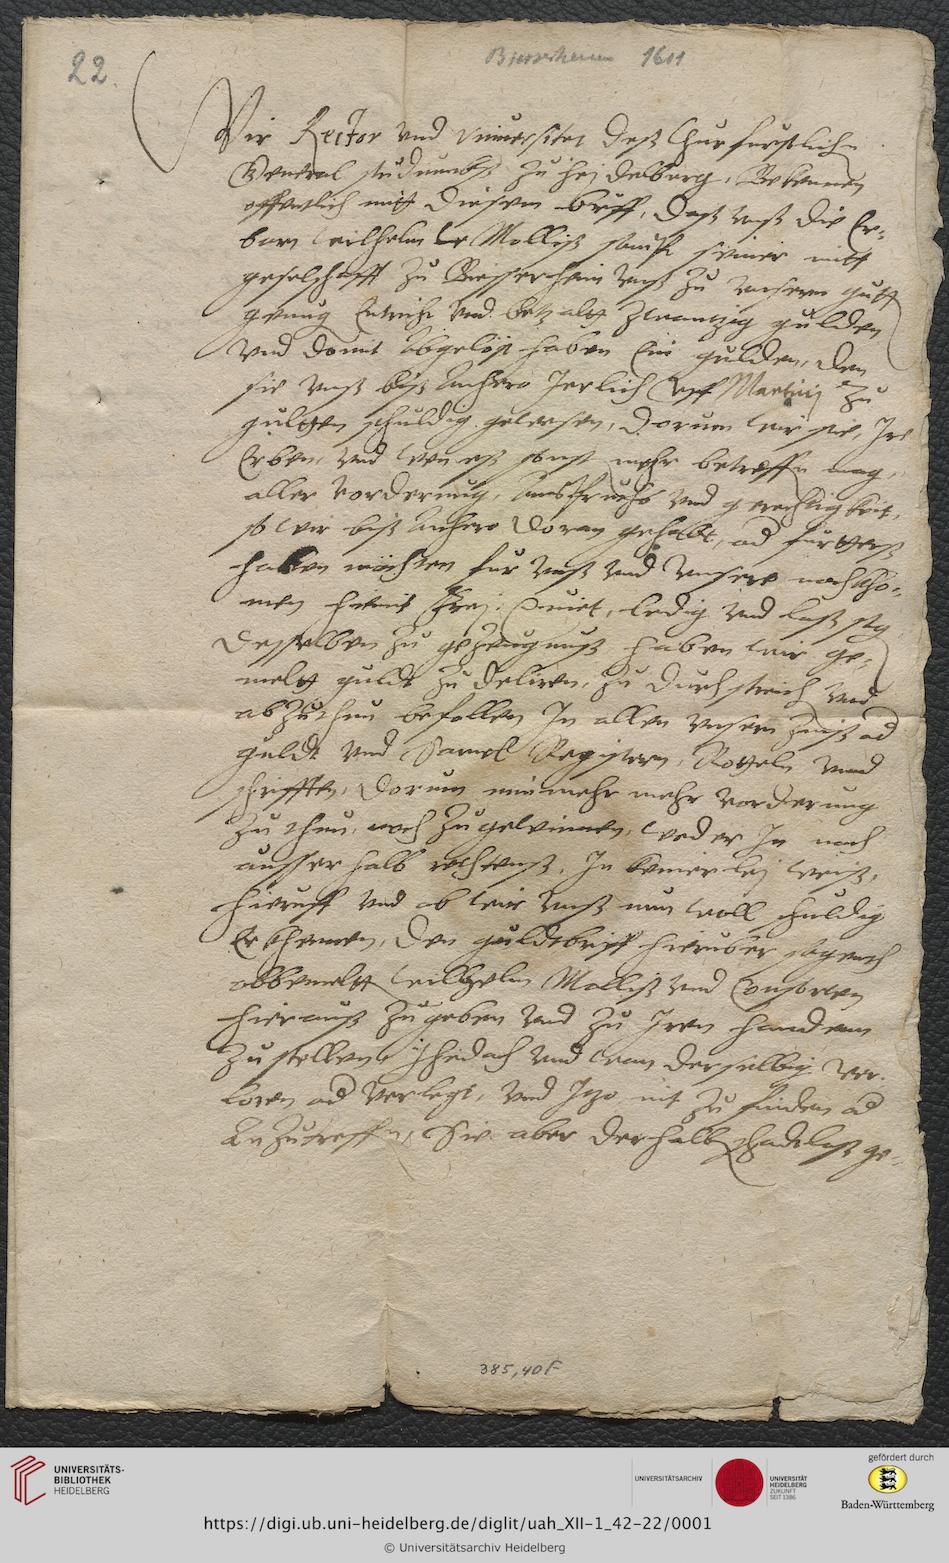 22.
1611
Wir Rector vnd Vniuersitet deß Churfurstlichn
General studiumbs zu Heidelberg, Bekennen
offentlich mitt diesem brieff, daß vnß die Er-
barn Wilhelm le Molliß sampt seiner mitt
geselschafft zu vnß zu vnserm gutt
genug Entricht vnd betzaltt zwantzig gulden
vnd domit abgelöst haben Ein gulden, den
sie vnß biß anhero Jerlich vff Martinj zu
gultten schuldig gewesen, Dorumb wir sie, Ire
Erben, vnd wen eß sonst mehr betreffn mag,
aller vorderung, Anspruchs vnd gerechtigkeit,
so wir biß anhero doran gehabtt, od furtterß
haben möchten fur vnß vnd vnsere nachkho-
men hiemit frej, Quiet, ledig vnd loß sag
Desselben zu gezeugnuß haben wir ge-
meltt guldt zu deliren, zu durchstreich vnd
abzuthun befollen In allen vnsern Zinß od
guldt vnd Registern, Rotteln vnnd
schrifften, Dorum nimmehr mehr vorderung
zu thun, noch zu gewinnen, weder In noch
ausserhalb rechtenß, In keinerlej weiß,
Hieruff vnd ob wir vnß nun woll schuldig
Erkhennen, den guldtbrieff hieruber sagendt
obbemeltt Wilhelm Molliß vnd Consorten
hierauß zu geben vnd zu Iren handenn
zu stellen, Jhedoch vnd wan derselbig ver-
loren od verlegt, vnd Itzo nit zu finden od
Anzutreffn, Sie aber derhalb schadtloß ge-
385,40F
UNIVERSITÄTS-
BIBLIOTHEK
HEIDELBERG
UNIVERSITÄTSARCHIV
UNIVERSITÄT
HEIDELBERG
ZUKUNFT
SEIT 1386
gefördert durch
Baden-Württemberg
https://digi.ub.uni-heidelberg.de/diglit/uah_XII-1_42-22/0001
© Universitätsarchiv Heidelberg